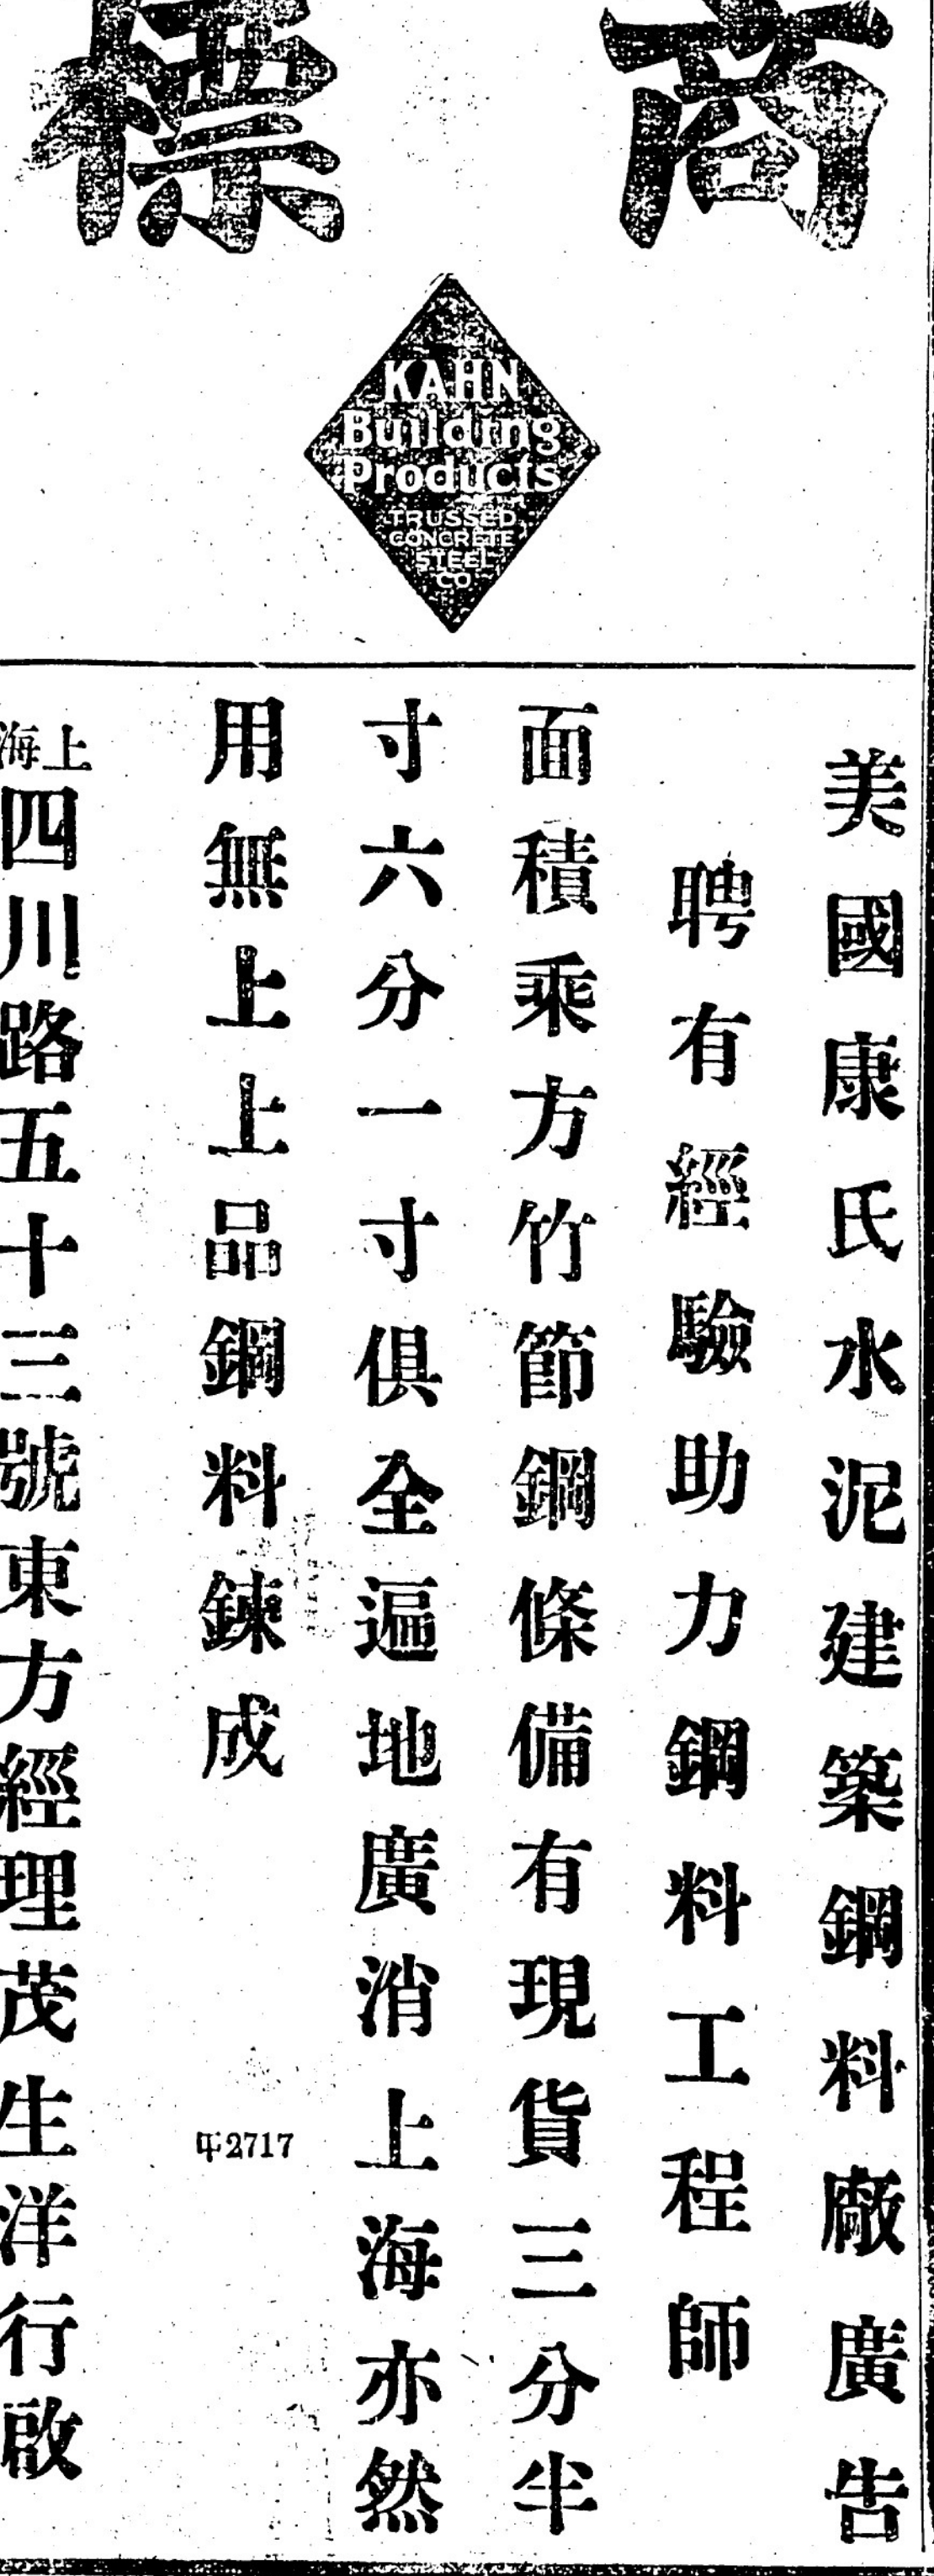 商標
KAHN
Building
Products
TRUSSED
CONCRETE
STEEL
CO
美國康氏水泥建築鋼料廠廣告
聘有經驗助力鋼料工程師
面積乘方竹節鋼條備有現貨三分半
寸六分一寸俱全遍地廣消上海亦然
用無上上品鋼料鍊成
2717
上海四川路五十三號東方經理茂生洋行啟